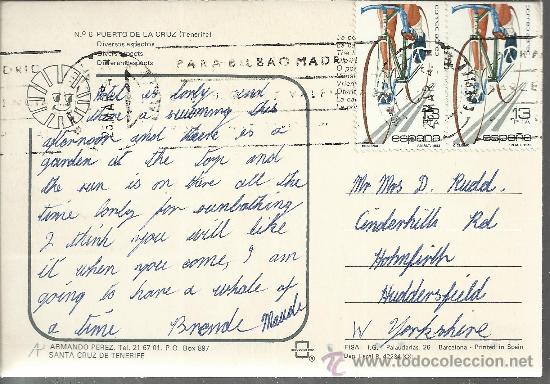 N.º 6 PUERTO DE LA CRUZ (Tenerife)
Diversos aspectos
Divers aspects
Different aspects
PARA BILBAO MADR
is lovly and
have a swimming this
afternoon and there is a
garden at the top and
the sun is on here all the
time lovly for sunbathing
I think you will like
it when you come, I am
going to have a whale of
a time Brenda Maude
correos
españa
13
PTA
españa
Mr Mrs D. Rudd.
Cinderhills Rd
Holmfirth
Huddersfield
W Yorkshire
ARMANDO PEREZ. Tel. 21 67 01. P.O. Box 897
SANTA CRUZ DE TENERIFF
FISA I.G. Palaudarias, 26 Barcelona - Printed in Spain
todocoleccion.net